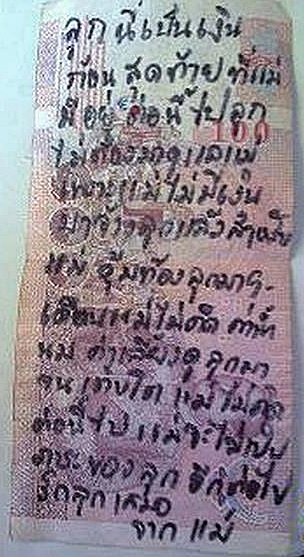 ลูก นี่เป็นเงิน
ก้อน สุดท้าย ที่แม่
มีอยู่ ต่อนี้ไปลูก
100
ไม่ต้องมาดูแลแม่
เพราะแม่ไม่มีเงิน
มาจ้างลูกแล้ว สำหรับ
แม่ อุ้มท้องลูกมา 9
เดือนแม่ไม่คิด ค่าน้ำ
นม ค่าเลี้ยงดู ลูกมา
จน เติบโต แม่ไม่คิด
ต่อนี้ไป แม่จะไม่เป็น
ภาระของลูก อีกต่อไป
รักลูกเสมอ
จาก แม่